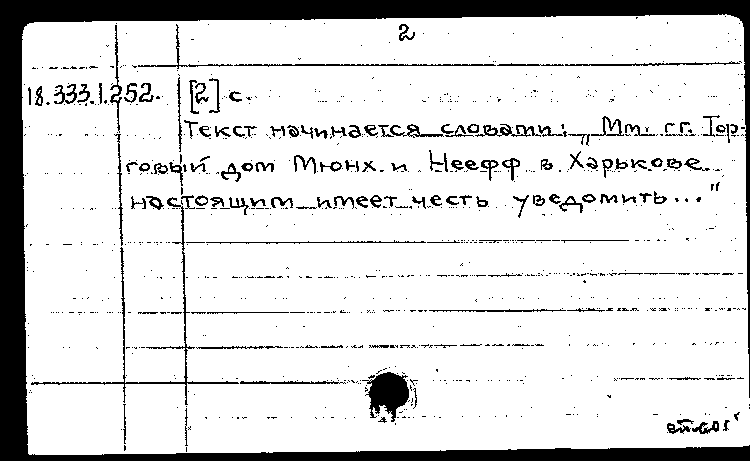 2
18.333.1.252. [2] с.
Текст начинается словами: „Мм. гг. Тор-
говый дом Мюнх. и Нееф̄ф в Харькове
настоящим имеет честь уведомить..."